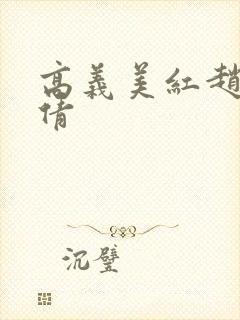 高義美紅趙
倩
沉璧